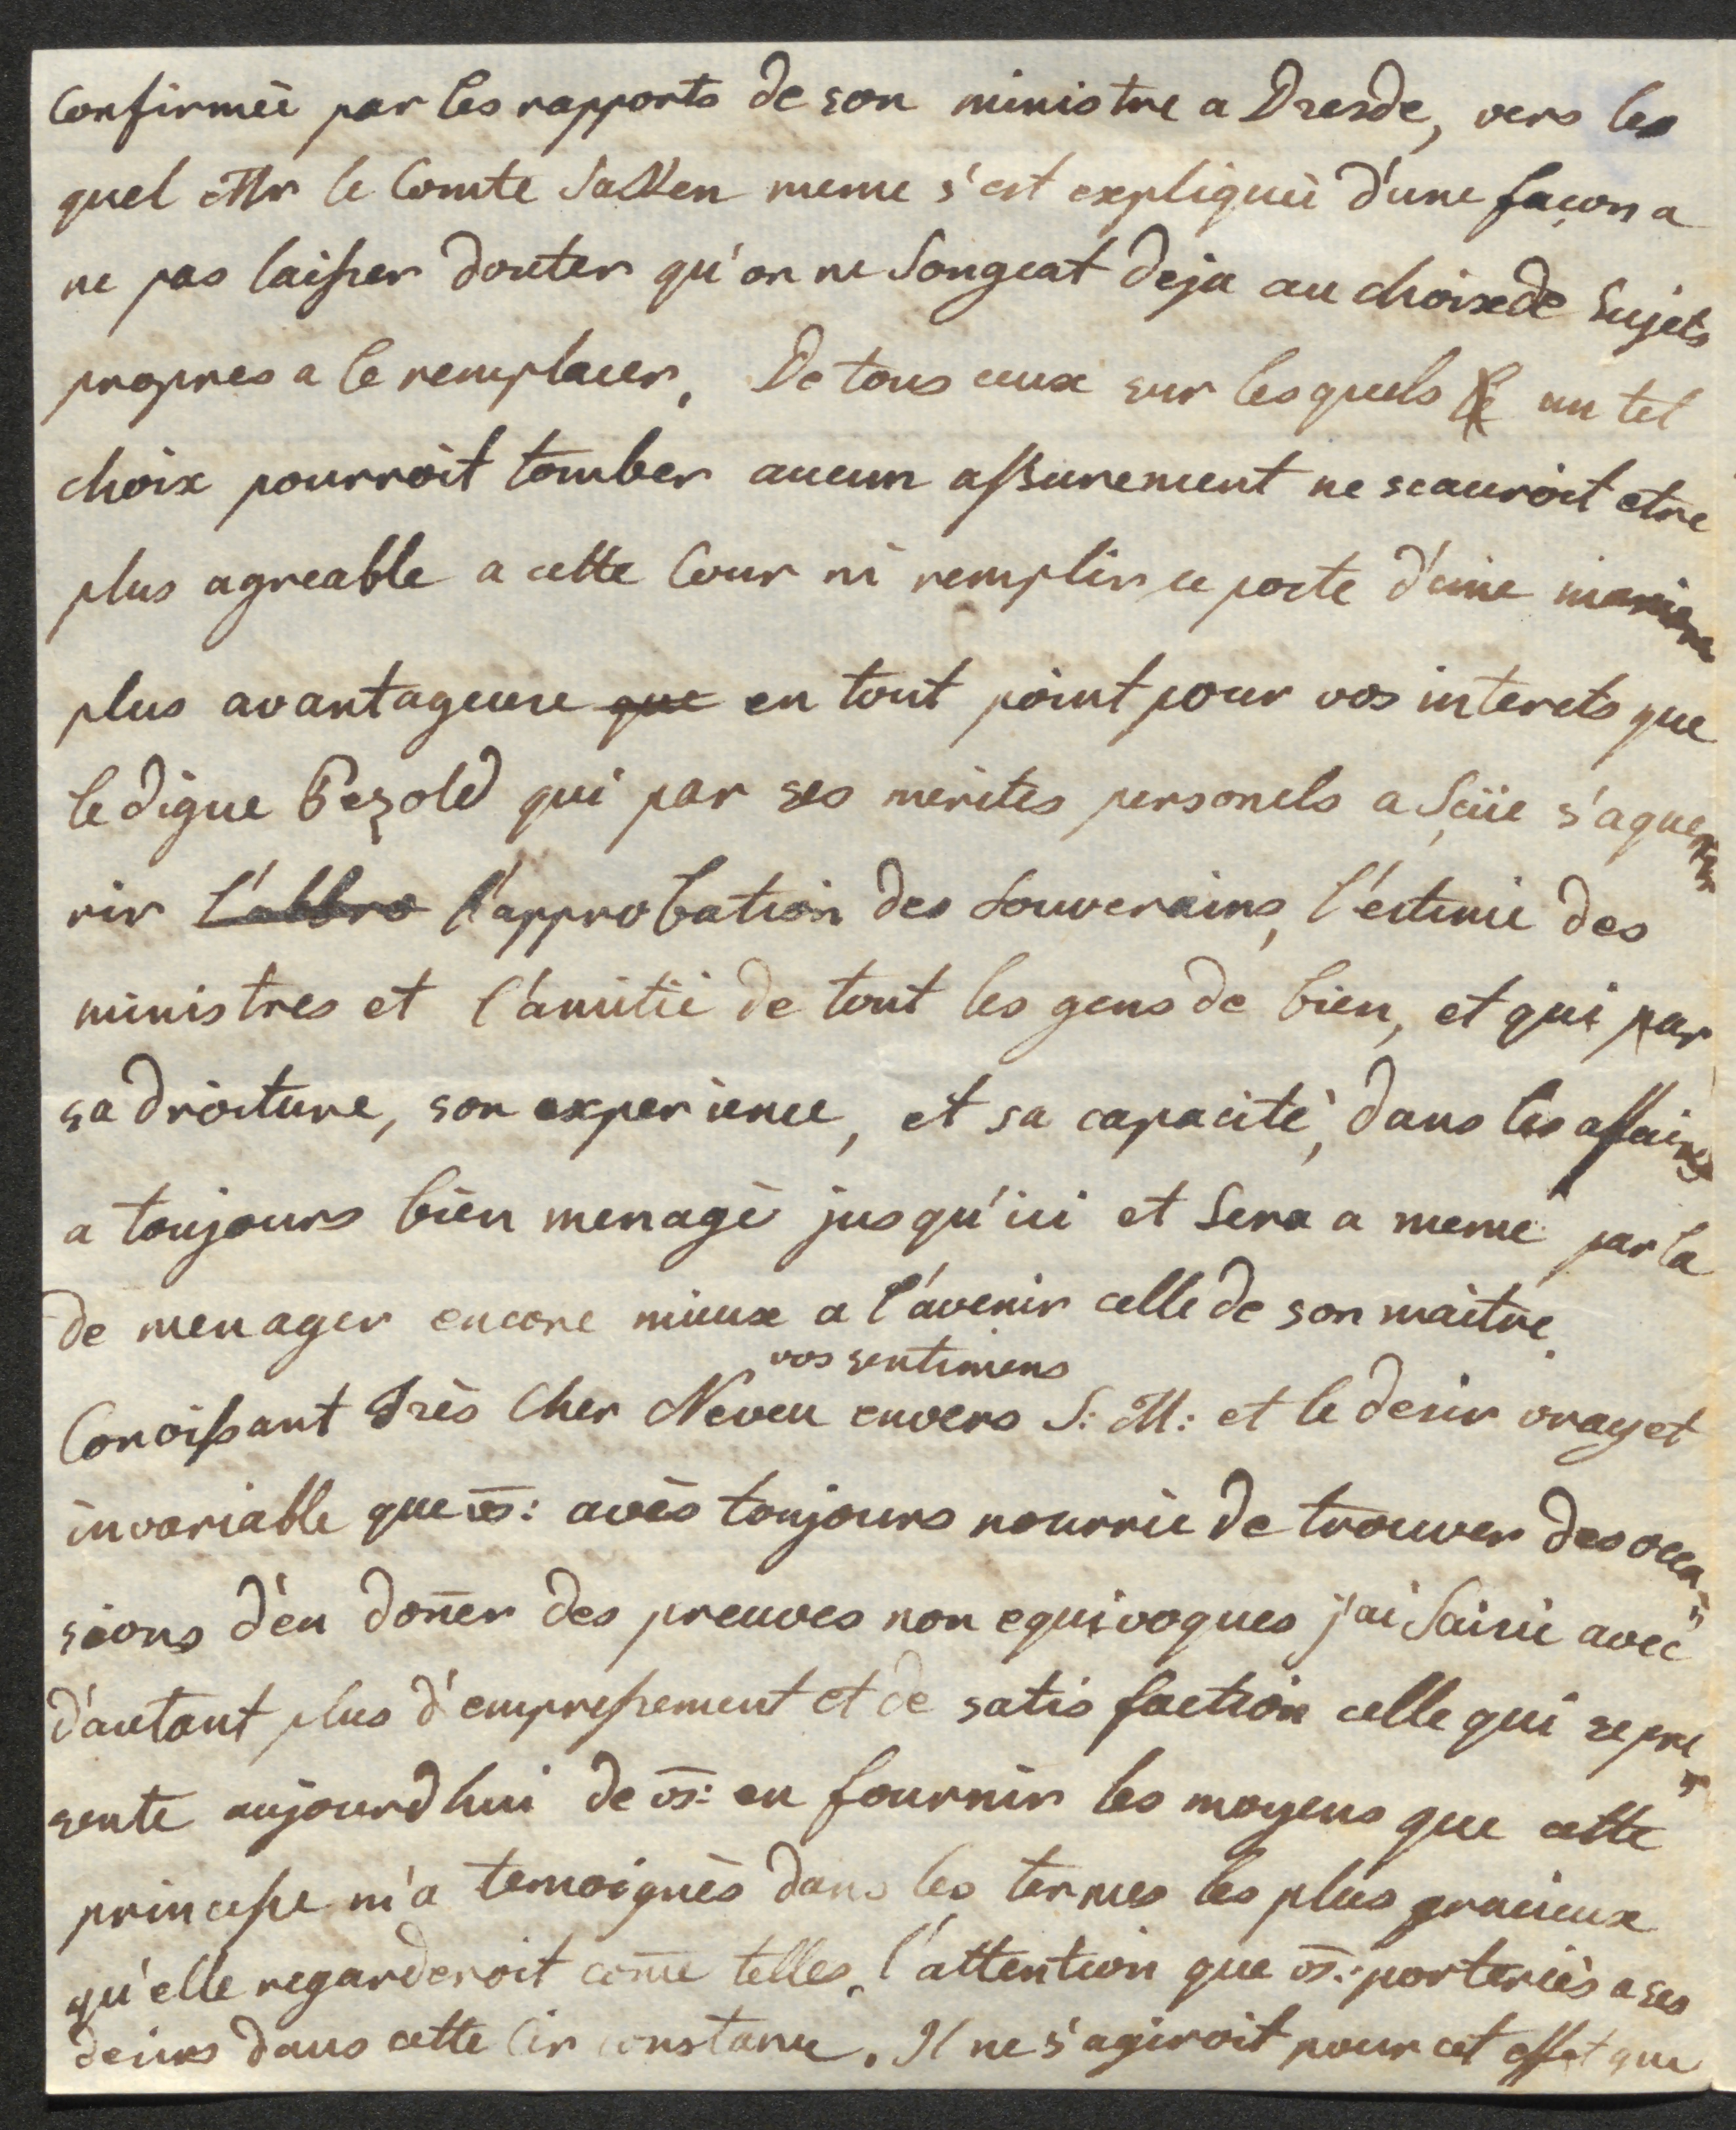 Confirmèe par les rapports de son ministre a Dresde, vers le
quel Mr le Comte Sakken meme s'est expliquè d'une façon a
ne pas laisser douter qu'on ne Songeat deja au choix de Sujets
propres a le remplacer. De tous ceux sur lesquels un tel
choix pourroit tomber aucun assurement ne scauroit etre
plus agreable a cette Cour ni remplir ce poste d'une maniere
plus avantageuse que en tout point pour vos interets que
le digne Pezold qui par ses merites personels a Sçüe s'aque
rir l'abbro l'approbation des Souverains, l'estime des
ministres et l'amitiè de tout les gens de bien, et qui par
sa droiture, son experience, et sa capacitè, dans les affaires
a toujours bien menagè jusqu'ici et Sera a meme par la
de menager encore mieux a l'avenir celle de son maitre.
vos sentimens
Conoissant Très Cher Neveu envers S: M: et le desir vray et
invariable que vs: avès toujours nourrie de trouver des occa=
sions d'en doner des preuves non equivoques j'ai Saisie avec
d'autant plus d'empressement et de satisfaction celle qui se pre=
sente aujourd hui de vs: en fournir les moyens que cette
princesse m'a temoignès dans les termes les plus gracieux
qu'elle regarderoit come telles, l'attention que vs: porteriès a ses
desirs dans cette Circonstance. Il ne s'agiroit pour cet effet que